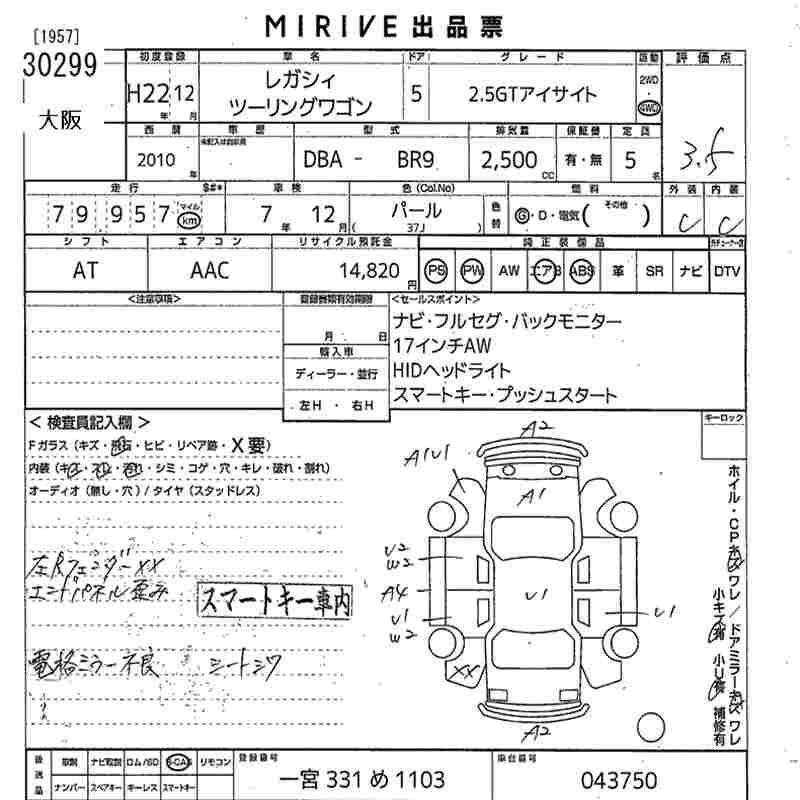 MIRIVE 出品票
[1957]
30299
大阪
初度登録 車名 ドア グレード 駆動 評価点
H22 12 年 月
レガシィ
ツーリングワゴン
5
2.5GTアイサイト
2WD
4WD
3.5
西暦 車歴 型式 排気量 保証書 定員
2010 年
未記入は自家用
DBA - BR9
2,500 CC
有・無
5 名
走行 $#* 車検 色(Col.No) 燃料 外装 内装
79957 マイル km
7 年 12 月
パール
( 37J )
色替
G・D・電気( その他 )
C C
シフト エアコン リサイクル預託金 純正装備品
AT AAC 14,820 円
PS PW AW エアB ABS 革 SR ナビ DTV
<注意事項> 登録書類有効期限 <セールスポイント>
月 日
輸入車
ディーラー・並行
左H ・ 右H
ナビ・フルセグ・バックモニター
17インチAW
HIDヘッドライト
スマートキー・プッシュスタート
キーロック
< 検査員記入欄 >
Fガラス(キズ・飛石・ヒビ・リペア跡・X要)
内装(キズ・スレ・汚れ・シミ・コゲ・穴・キレ・破れ・割れ)
オーディオ(無し・穴)/タイヤ(スタッドレス)
左Rフェンダーxx
エンドパネル歪み
スマートキー車内
電格ミラー不良 シートシワ
A2
A1U1
A1
U2
W2
A4
U1
U1
W2
U1
XX
A2
ホイル・CPキズワレ/ドアミラーキズワレ
小キズ有 小U有 補修有
後送品
取説 ナビ取説 ロム/SD B-CAS リモコン
ナンバー スペアキー キーレス スマートキー
登録番号
一宮 331 め 1103
車台番号
043750